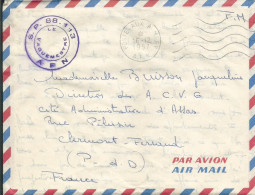 F.M
S.P. 88.113
LE
VAGUEMESTRE
A F N
Mademoiselle Buisson Jacqueline
Direction des A.C.V.G
Cité Administrative d'Assas
Rue Pélissier
Clermont-Ferrand
P-de-D
France
PAR AVION
AIR MAIL